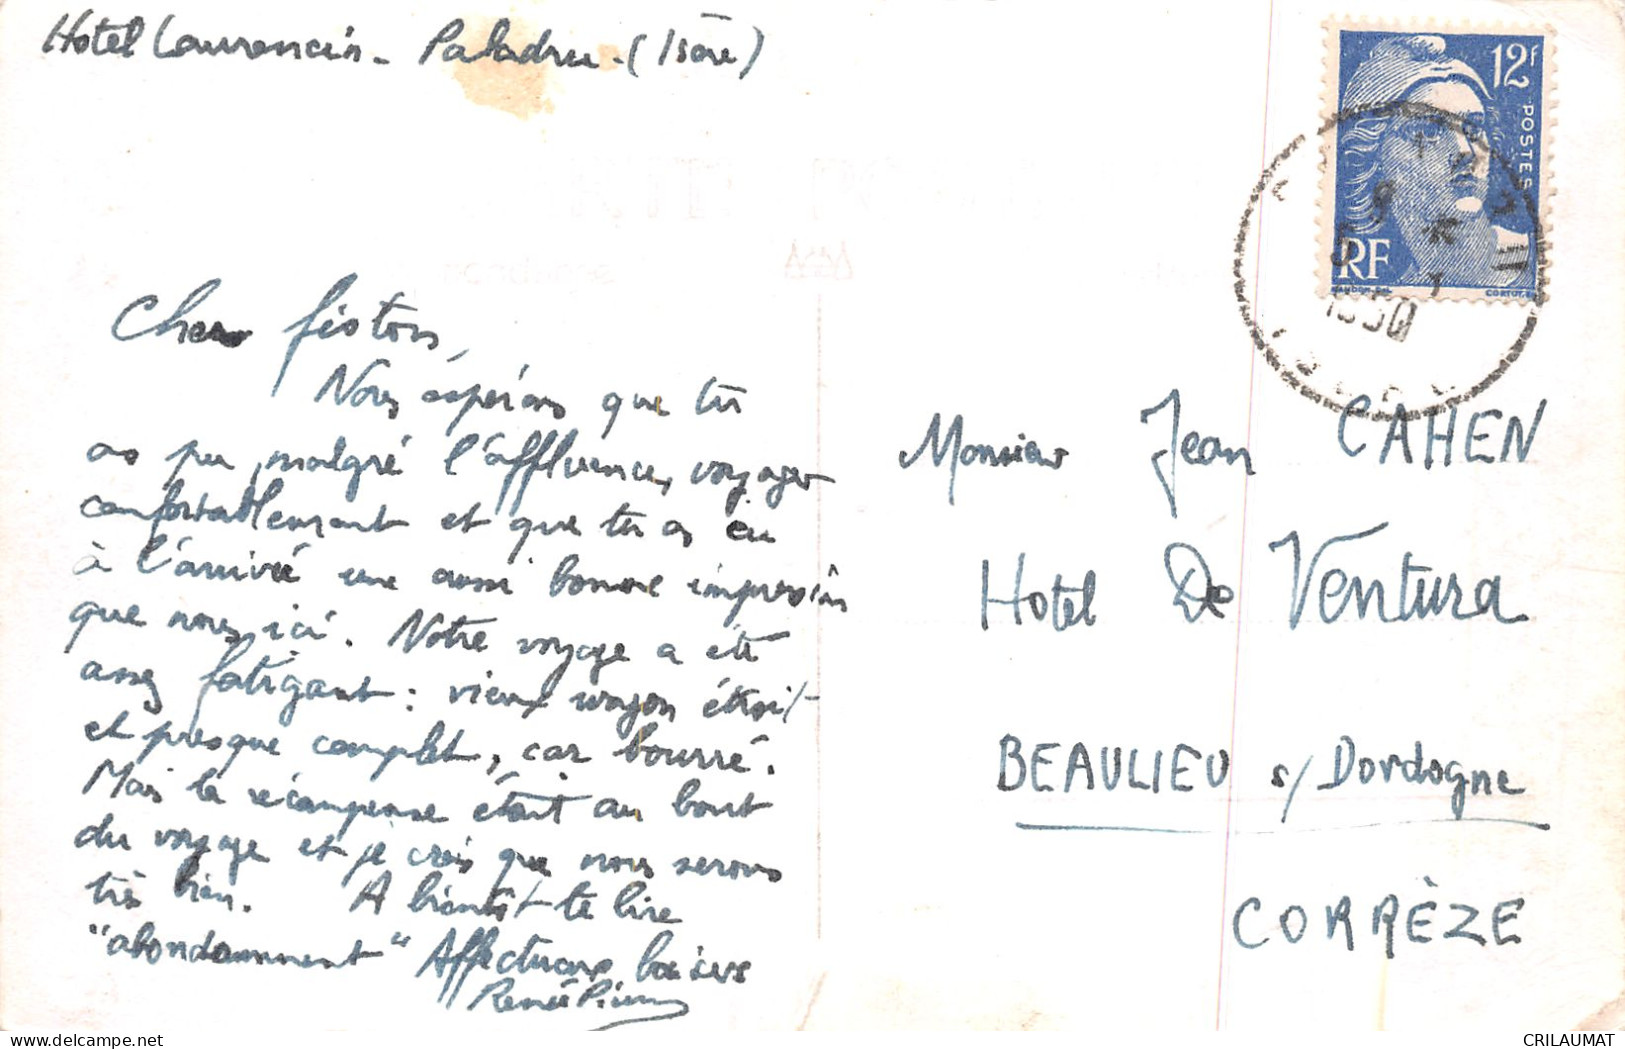 Hotel Laurencin - Paladru - (Isère)
12f
POSTES
RF
GANDON DEL.
CORTOT
1950
Cher fiston,
Nous espérons que tu
as pu, malgré l'affluence, voyager
confortablement et que tu as eu
à l'arrivée une aussi bonne impression
que nous, ici. Notre voyage a été
assez fatigant : vieux wagon étroit
et presque complet, car bourré.
Mais la récompense était au bout
du voyage et je crois que nous serons
très bien. A bientôt te lire
"abondamment" Affectueux baisers
Renée
Monsieur Jean CAHEN
Hotel De Ventura
BEAULIEU s/ Dordogne
CORRÈZE
CRILAUMAT